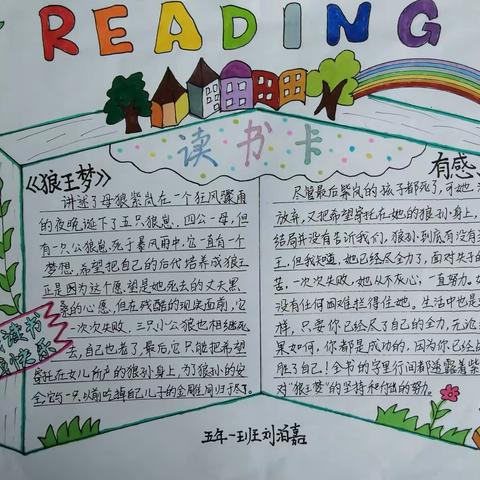 READING
读书卡
《狼王梦》
讲述了母狼紫岚在一个狂风骤雨
的夜晚诞下了五只狼崽，四公一母，但
有一只公狼崽死于暴风雨中，它一直有个
梦想，希望把自己的后代培养成狼王
正是因为这个愿望是她死去的丈夫黑
桑的心愿，但在残酷的现实面前，它
一次次失败，三只小公狼也相继死
去，自己也老了，最后，它只能把希望
寄托在女儿所产的狼孙身上，为了狼孙的安
全，它与一只以前吃掉自己儿子的金雕同归于尽了。
有感
尽管最后紫岚的孩子都死了，可她
放弃，又把希望寄托在她的狼孙身上，
结局并没有告诉我们，狼孙到底有没有
王，但我知道，她已经尽全力了，面对失子的
苦，一次次失败，她从不灰心，一直努力。
没有任何困难拦得住她。生活中也是
样，只要你已经尽了自己的全力，无论
果如何，你都是成功的，因为你已经战
胜了自己！全书的字里行间都透露着紫
对"狼王梦"的坚持和付出的努力。
读书
快乐
五年一班刘泊嘉